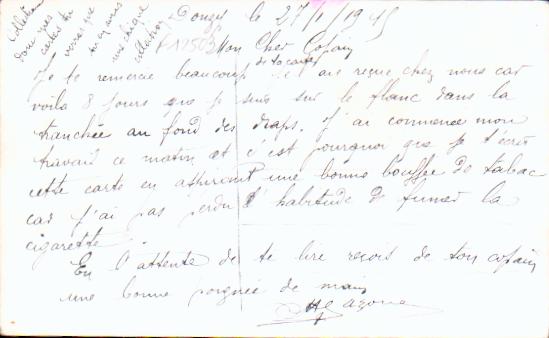 Collection
dans mes
cartes tu
verras que
tu y auras
une chique
collection
Donges le 27/1/1915
Mon Cher Copain
Je te remercie beaucoup de ta carte reçue chez nous car
voila 8 jours que je suis sur le flanc dans la
tranchée au fond des draps. J'ai commencé mon
travail ce matin et c'est pourquoi que je t'écris
cette carte en aspirant une bonne bouffée de tabac
car j'ai pas perdu l'habitude de fumer la
cigarette.
En l'attente de te lire reçois de ton copain
une bonne poignée de main